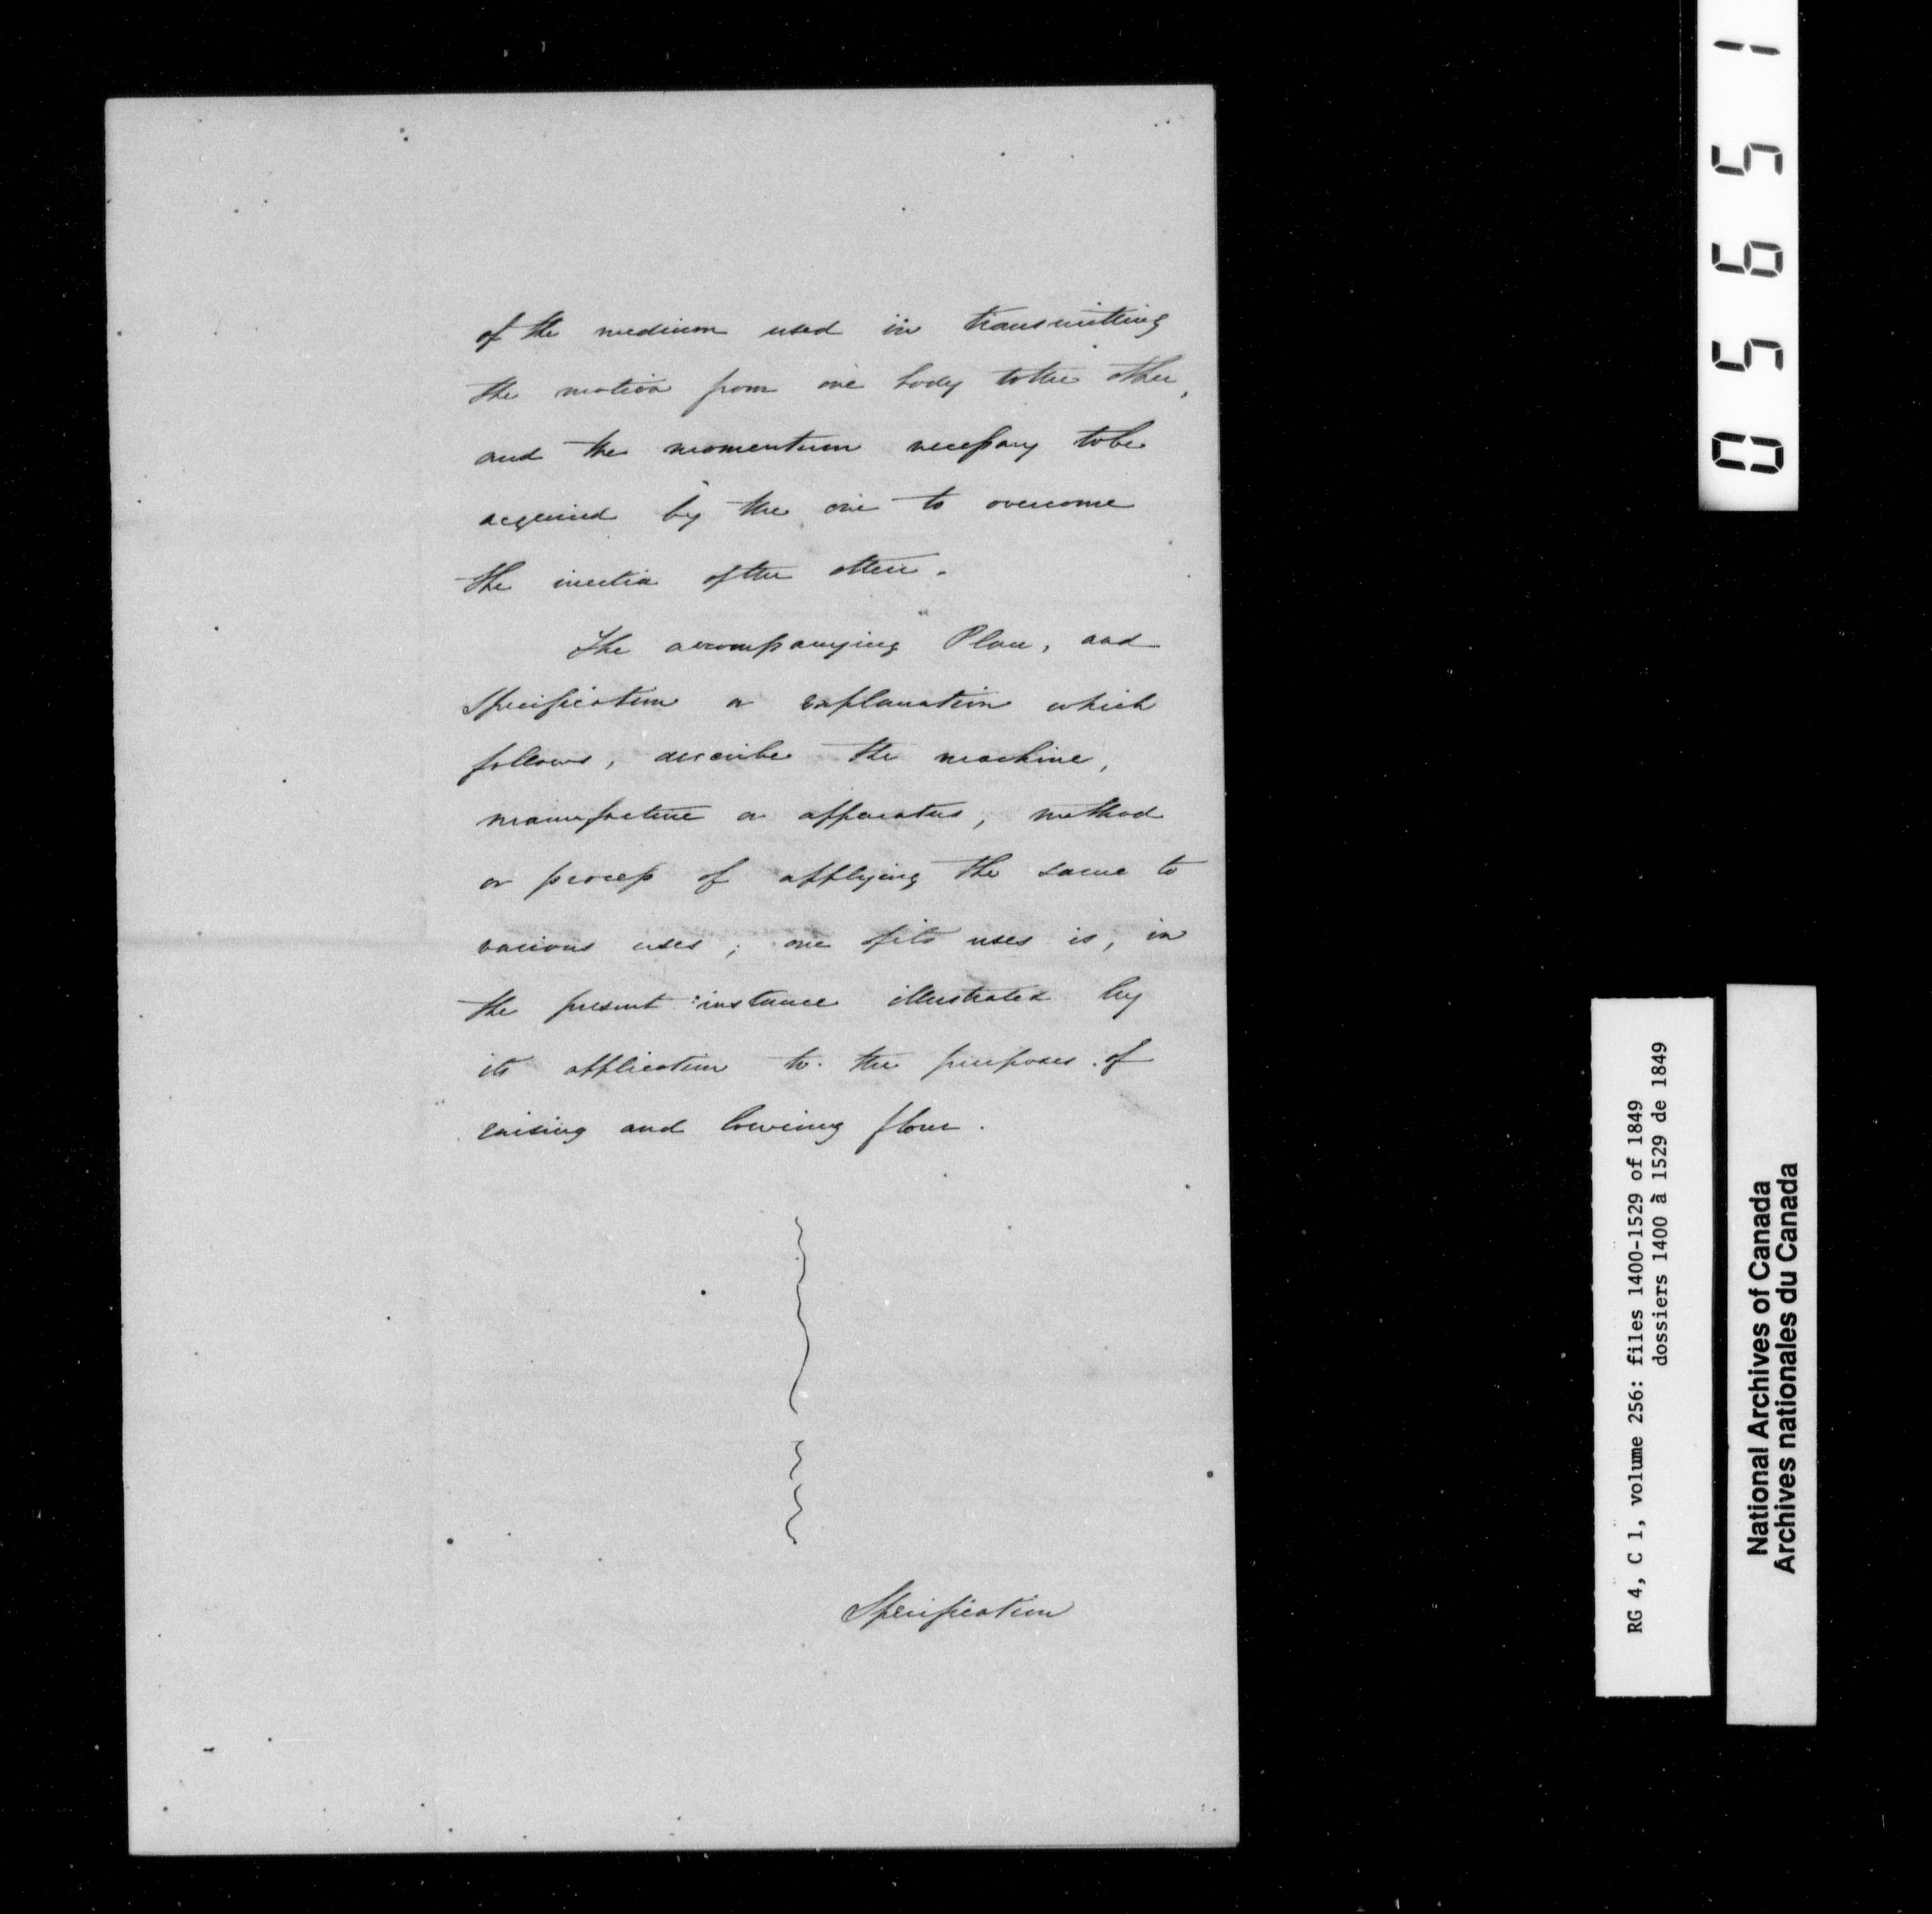 of the medium used in transmitting
the motion from one body to the other,
and the momentum necessary to be
acquired by the one to overcome
the inertia of the other.
The accompanying Plan, and
Specification or explanation which
follows, describe the machine,
manufacture or apparatus, method
or process of applying the same to
various uses; one of its uses is, in
the present instance illustrated by
its application to the purposes of
raising and lowering flour.
Specification
05651
RG 4, C 1, volume 256: files 1400-1529 of 1849
dossiers 1400 à 1529 de 1849
National Archives of Canada
Archives nationales du Canada